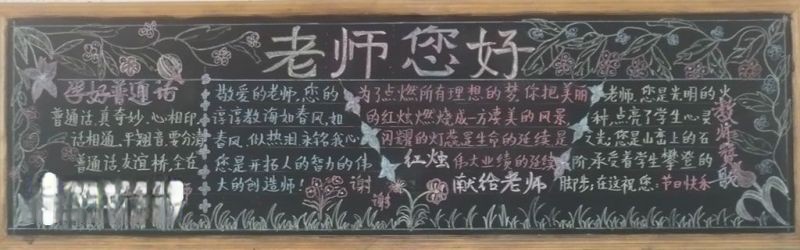 老师您好
学好普通话
普通话,真奇妙,心相印,
话相通,平翘音,要分清
普通话,友谊桥,全在
敬爱的老师,您的
谆谆教诲如春风,如
春风,似热泪永铭我心
您是开拓人的智力的伟
大的创造师!谢
谢
为了点燃所有理想的梦,你把美丽
的红烛燃烧成一方凄美的风景
闪耀的灯蕊是生命的延续是
红烛 伟大业绩的延续
献给老师
老师,您是光明的火
种,点亮了学生心灵
之光;您是山峦上的石
阶,承受着学生攀登的
脚步;在这祝您:节日快乐
教师赞歌